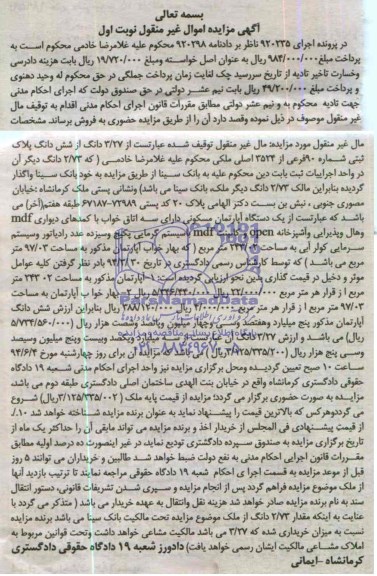 بسمه تعالی
آگهی مزایده اموال غیر منقول نوبت اول
در پرونده اجرای ۹۲۰۲۳۵ ناظر بر دادنامه ۹۲۰۲۹۸ محکوم علیه غلامرضا خادمی محکوم است به
پرداخت مبلغ ۹۸۴/۰۰۰/۰۰۰ ریال به عنوان اصل خواسته ومبلغ ۱۹/۷۲۰/۰۰۰ ریال بابت هزینه دادرسی
وخسارت تاخیر تادیه از تاریخ سررسید چک لغایت زمان پرداخت جملگی در حق محکوم له وحید دهنوی
و پرداخت مبلغ ۴۹/۲۰۰/۰۰۰ ریال بابت نیم عشر دولتی در حق صندوق دولت که اجرای احکام مدنی
جهت تادیه محکوم به و نیم عشر دولتی مطابق مقررات قانون اجرای احکام مدنی اقدام به توقیف مال
غیر منقول موصوف در ذیل نموده وقصد دارد آن را از طریق مزایده حضوری به فروش برساند. مشخصات
مال غیر منقول مورد مزایده: مال غیر منقول توقیف شده عبارتست از ۳/۲۷ دانگ از شش دانگ پلاک
ثبتی شماره ۹۰فرعی از ۳۵۲۴ اصلی ملکی محکوم علیه غلامرضا خادمی ( که ۲/۷۳ دانگ دیگر آن
در واحد اجراییات ثبت بابت دین محکوم علیه به بانک سینا از طریق مزایده به خود بانک سینا واگذار
گردیده بنابراین مالک ۲/۷۳ دانگ دیگر ملک، بانک سینا می باشد) ونشانی پستی ملک کرمانشاه :خیابان
مصوری جنوبی ، نبش بن بست دکتر الهامی پلاک ۲۰ کد پستی ۷۲۹۸۹-۶۷۱۸۷ طبقه هفتم(آخر) می
باشد که عبارتست از یک دستگاه آپارتمان مسکونی دارای سه اتاق خواب با کمدهای دیواری mdf
وهال وپذیرایی وآشپزخانه open و کابینت mdf و سیستم گرمایی پکیج وسیزده عدد رادیاتور وسیستم
سرمایی کولر آبی به مساحت ۲۴۳/۰۲ متر مربع ( که بهار خواب آپارتمان مذکور به مساحت ۹۷/۰۳ متر
مربع می باشد ) که توسط کارشناس رسمی دادگستری در تاریخ ۹۴/۳/۳۰ بادر نظر گرفتن کلیه عوامل
موثر و دخیل در قیمت گذاری بدین نحو ارزیابی گردیده است: ۱- آپارتمان مذکور به مساحت ۲۴۳/۰۲ متر
مربع از قرار هر متر مربع ۲۲/۰۰۰/۰۰۰ ریال ۵/۳۴۶/۴۴۰/۰۰۰ ریال ۲- بهار خوا ب آپارتمان به مساحت
۹۷/۰۳ متر مربع از قرار هر متر مربع ۴/۰۰۰/۰۰۰ ریال ۳۸۸/۱۲۰/۰۰۰ ریال بنابراین ارزش شش دانگ
آپارتمان مذکور پنج میلیارد وهفتصد وسی وچهار میلیون وپانصد وشصت هزار ریال (۵/۷۳۴/۵۶۰/۰۰۰
ریال) می باشد و ارزش ۳/۲۷ دانگ آن عبارتست از سه میلیارد ویکصد وبیست وپنج میلیون وسیصد
وسی پنج هزار ریال (۳/۱۲۵/۳۳۵/۲۰۰ریال) می باشد که مزایده آن برای روز چهارشنبه مورخ ۹۴/۶/۴
ساعت ۱۰ صبح تعیین گردیده ومحل برگزاری مزایده نیز واحد اجرای احکام مدنی شعبه ۱۹ دادگاه
حقوقی دادگستری کرمانشاه واقع در خیابان بنت الهدی ساختمان اصلی دادگستری طبقه دوم می باشد؛
مزایده به صورت حضوری برگزار می گردد؛ مزایده از قیمت پایه ملک ( ۳/۱۲۵/۳۳۵/۰۰۲ریال) شروع
می گرددوهرکس که بالاترین قیمت را پیشنهاد نماید به عنوان برنده مزایده شناخته خواهد شد ۱۰٪
از قیمت پیشنهادی فی المجلس از خریدار اخذ و برنده مزایده می تواند مابقی آن را حداکثر یک ماه از
تاریخ برگزاری مزایده به صندوق سپرده دادگستری تودیع نماید، در غیر اینصورت ده درصد اولیه مطابق
مقررات قانون اجرایی احکام مدنی به نفع دولت ضبط خواهد شد طالبین و خریداران می توانند ۵ روز
قبل از موعد مزایده به قسمت اجرا ی احکام شعبه ۱۹ دادگاه حقوقی مراجعه نمایند تا ترتیب بازدید آنها
از ملک موضوع مزایده فراهم گردد پس از انجام مزایده و سپری شدن تشریفات قانونی، دستور انتقال
سند به نام برنده مزایده صادر خواهد شد هزینه نقل وانتقال به عهده خریدار می باشد ( متذکر می گردد با
عنایت به اینکه مقدار ۲/۷۳ دانگ از ملک موضوع مزایده تحت مالکیت بانک سینا می باشد برنده مزایده
نسبت به میزان خریداری شده که ۳/۲۷ می باشد مالکیت مشاعی خواهد داشت وتحت قوانین مربوط به
املاک مشاعی مالکیت ایشان رسمی خواهد یافت) دادورز شعبه ۱۹ دادگاه حقوقی دادگستری
کرمانشاه -ایمانی